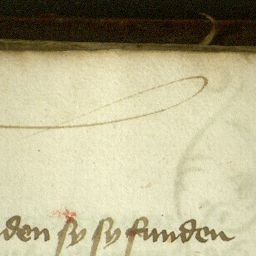 den sy sy funden